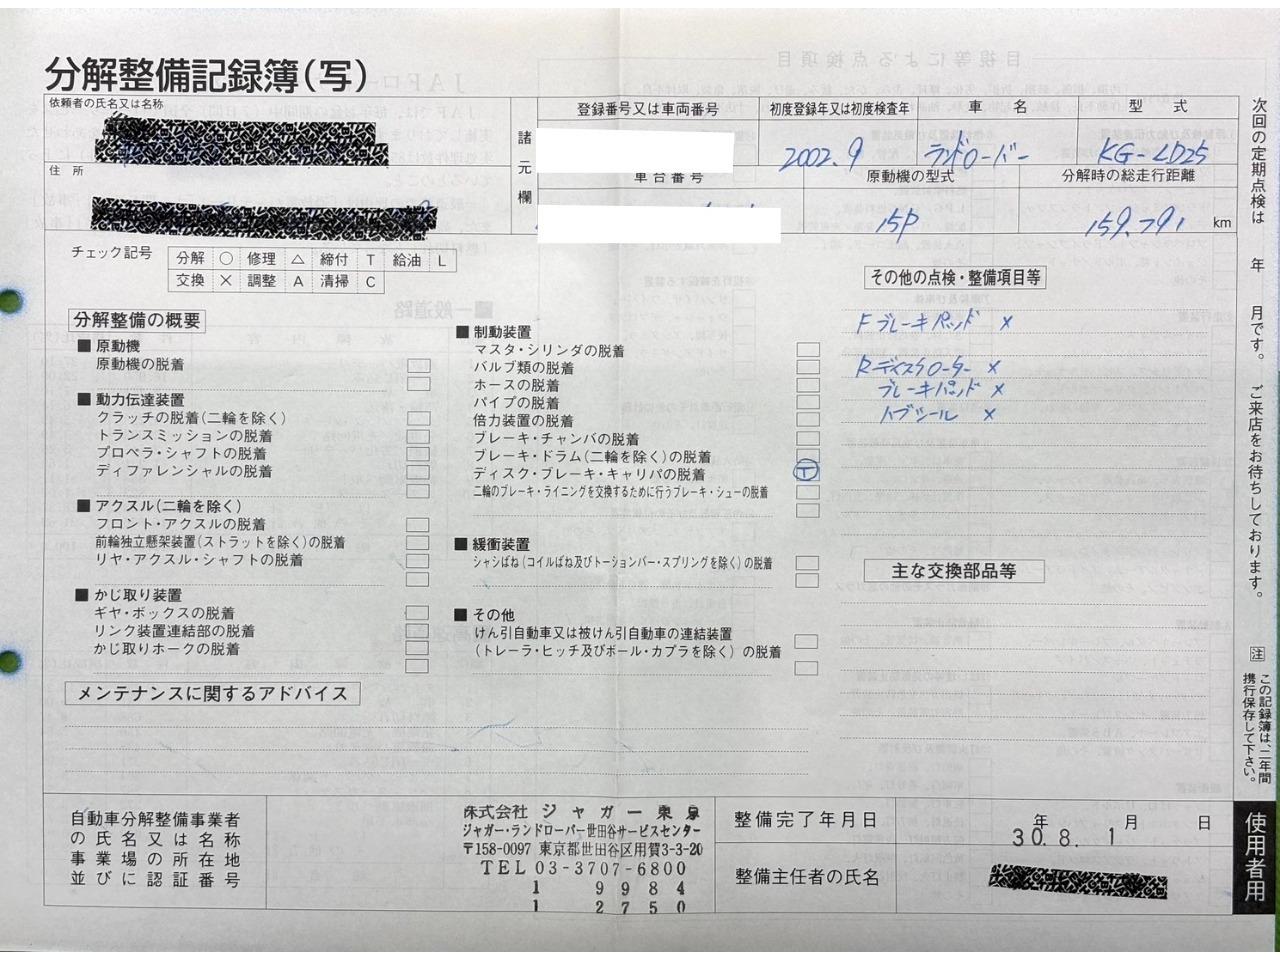 分解整備記録簿(写)
依頼者の氏名又は名称
住所
諸元欄
登録番号又は車両番号
初度登録年又は初度検査年
車名
型式
2002.9
ランドローバー
KG-LD25
車台番号
原動機の型式
分解時の総走行距離
15P
159.791 km
チェック記号
分解 ○ 修理 △ 締付 T 給油 L
交換 × 調整 A 清掃 C
分解整備の概要
■ 原動機
原動機の脱着
■ 動力伝達装置
クラッチの脱着(二輪を除く)
トランスミッションの脱着
プロペラ・シャフトの脱着
ディファレンシャルの脱着
■ アクスル(二輪を除く)
フロント・アクスルの脱着
前輪独立懸架装置(ストラットを除く)の脱着
リヤ・アクスル・シャフトの脱着
■ かじ取り装置
ギヤ・ボックスの脱着
リンク装置連結部の脱着
かじ取りホークの脱着
■ 制動装置
マスタ・シリンダの脱着
バルブ類の脱着
ホースの脱着
パイプの脱着
倍力装置の脱着
ブレーキ・チャンバの脱着
ブレーキ・ドラム(二輪を除く)の脱着
ディスク・ブレーキ・キャリパの脱着 T
二輪のブレーキ・ライニングを交換するために行うブレーキ・シューの脱着
■ 緩衝装置
シャシばね(コイルばね及びトーションバー・スプリングを除く)の脱着
■ その他
けん引自動車又は被けん引自動車の連結装置
(トレーラ・ヒッチ及びボール・カプラを除く)の脱着
その他の点検・整備項目等
Fブレーキパッド ×
Rディスクローター ×
ブレーキパッド ×
ハブシール ×
主な交換部品等
メンテナンスに関するアドバイス
自動車分解整備事業者
の氏名又は名称
事業場の所在地
並びに認証番号
株式会社 ジャガー東京
ジャガー・ランドローバー世田谷サービスセンター
〒158-0097 東京都世田谷区用賀3-3-20
TEL 03-3707-6800
1 9984
1 2750
整備完了年月日
年 月 日
30.8.1
整備主任者の氏名
次回の定期点検は 年 月です。ご来店をお待ちしております。
注 この記録簿は、二年間
携行保存して下さい。
使用者用